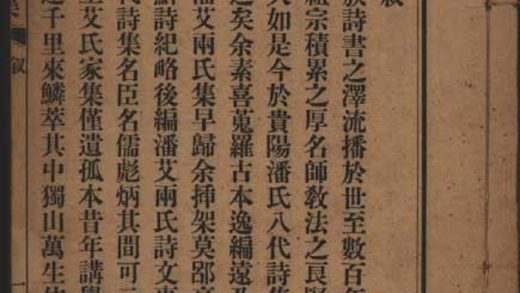 叙
族詩書之澤流播於世至數百年
祖宗積累之厚名師敎法之良
如是今於貴陽潘氏八代詩
之矣余素喜蒐羅古本逸編遠
潘艾兩氏集早歸余揷架莫郘亭
詩紀略後編潘艾兩氏詩文
代詩集名臣名儒彪炳其間可
艾氏家集僅遺孤本昔年講學
千里來鱗萃其中獨山萬生
叙